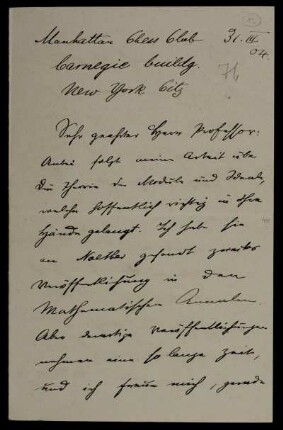 Manhattan Chess Club 31. III
Carnegie buildg. 04.
New York City 76
Sehr geehrter Herr Professor.
Anbei folgt meine Arbeit über
Die Theorie der Moduln und Ideale,
welche hoffentlich richtig in Ihre
Hände gelangt. Ich hab sie
an Noether gesandt zwecks
Veröffentlichung in den
Mathematischen Annalen.
Aber derartige Veröffentlichungen
nehmen eine so lange Zeit,
und ich freue mich, gerade